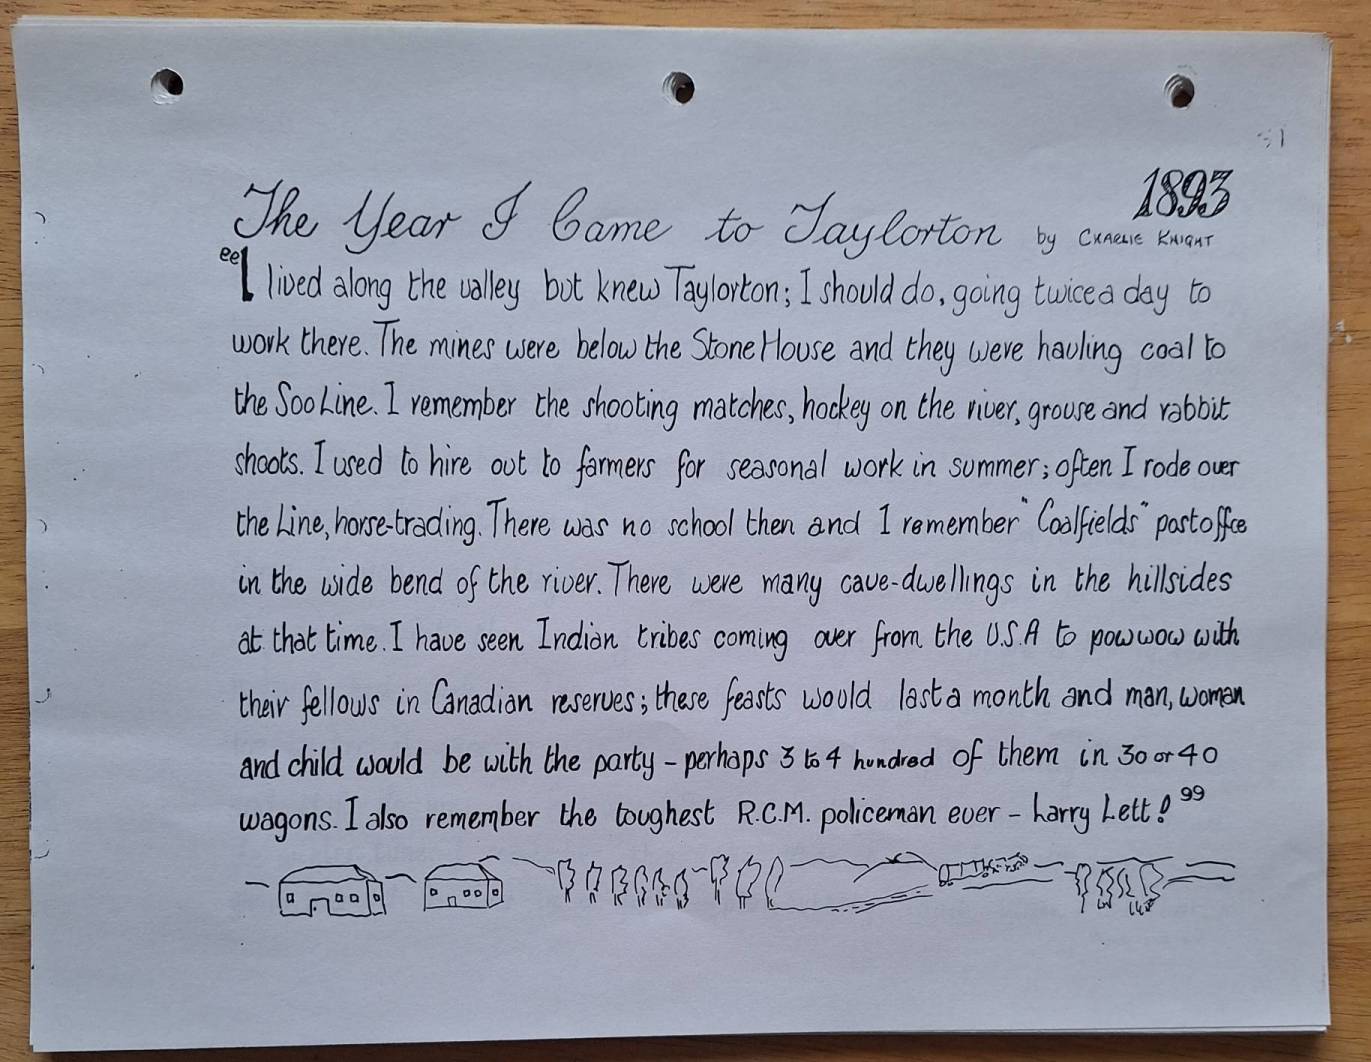 1893
The Year I Came to Taylorton by CHARLIE KNIGHT
"I lived along the valley but knew Taylorton; I should do, going twice a day to
work there. The mines were below the Stone House and they were hauling coal to
the Soo Line. I remember the shooting matches, hockey on the river, grouse and rabbit
shoots. I used to hire out to farmers for seasonal work in summer; often I rode over
the Line, horse-trading. There was no school then and I remember "Coalfields" postoffce
in the wide bend of the river. There were many cave-dwellings in the hillsides
at that time. I have seen Indian tribes coming over from the U.S.A to powwow with
their fellows in Canadian reserves; these feasts would last a month and man, woman
and child would be with the party - perhaps 3 to 4 hundred of them in 30 or 40
wagons. I also remember the toughest R.C.M. policeman ever - Larry Lett!"